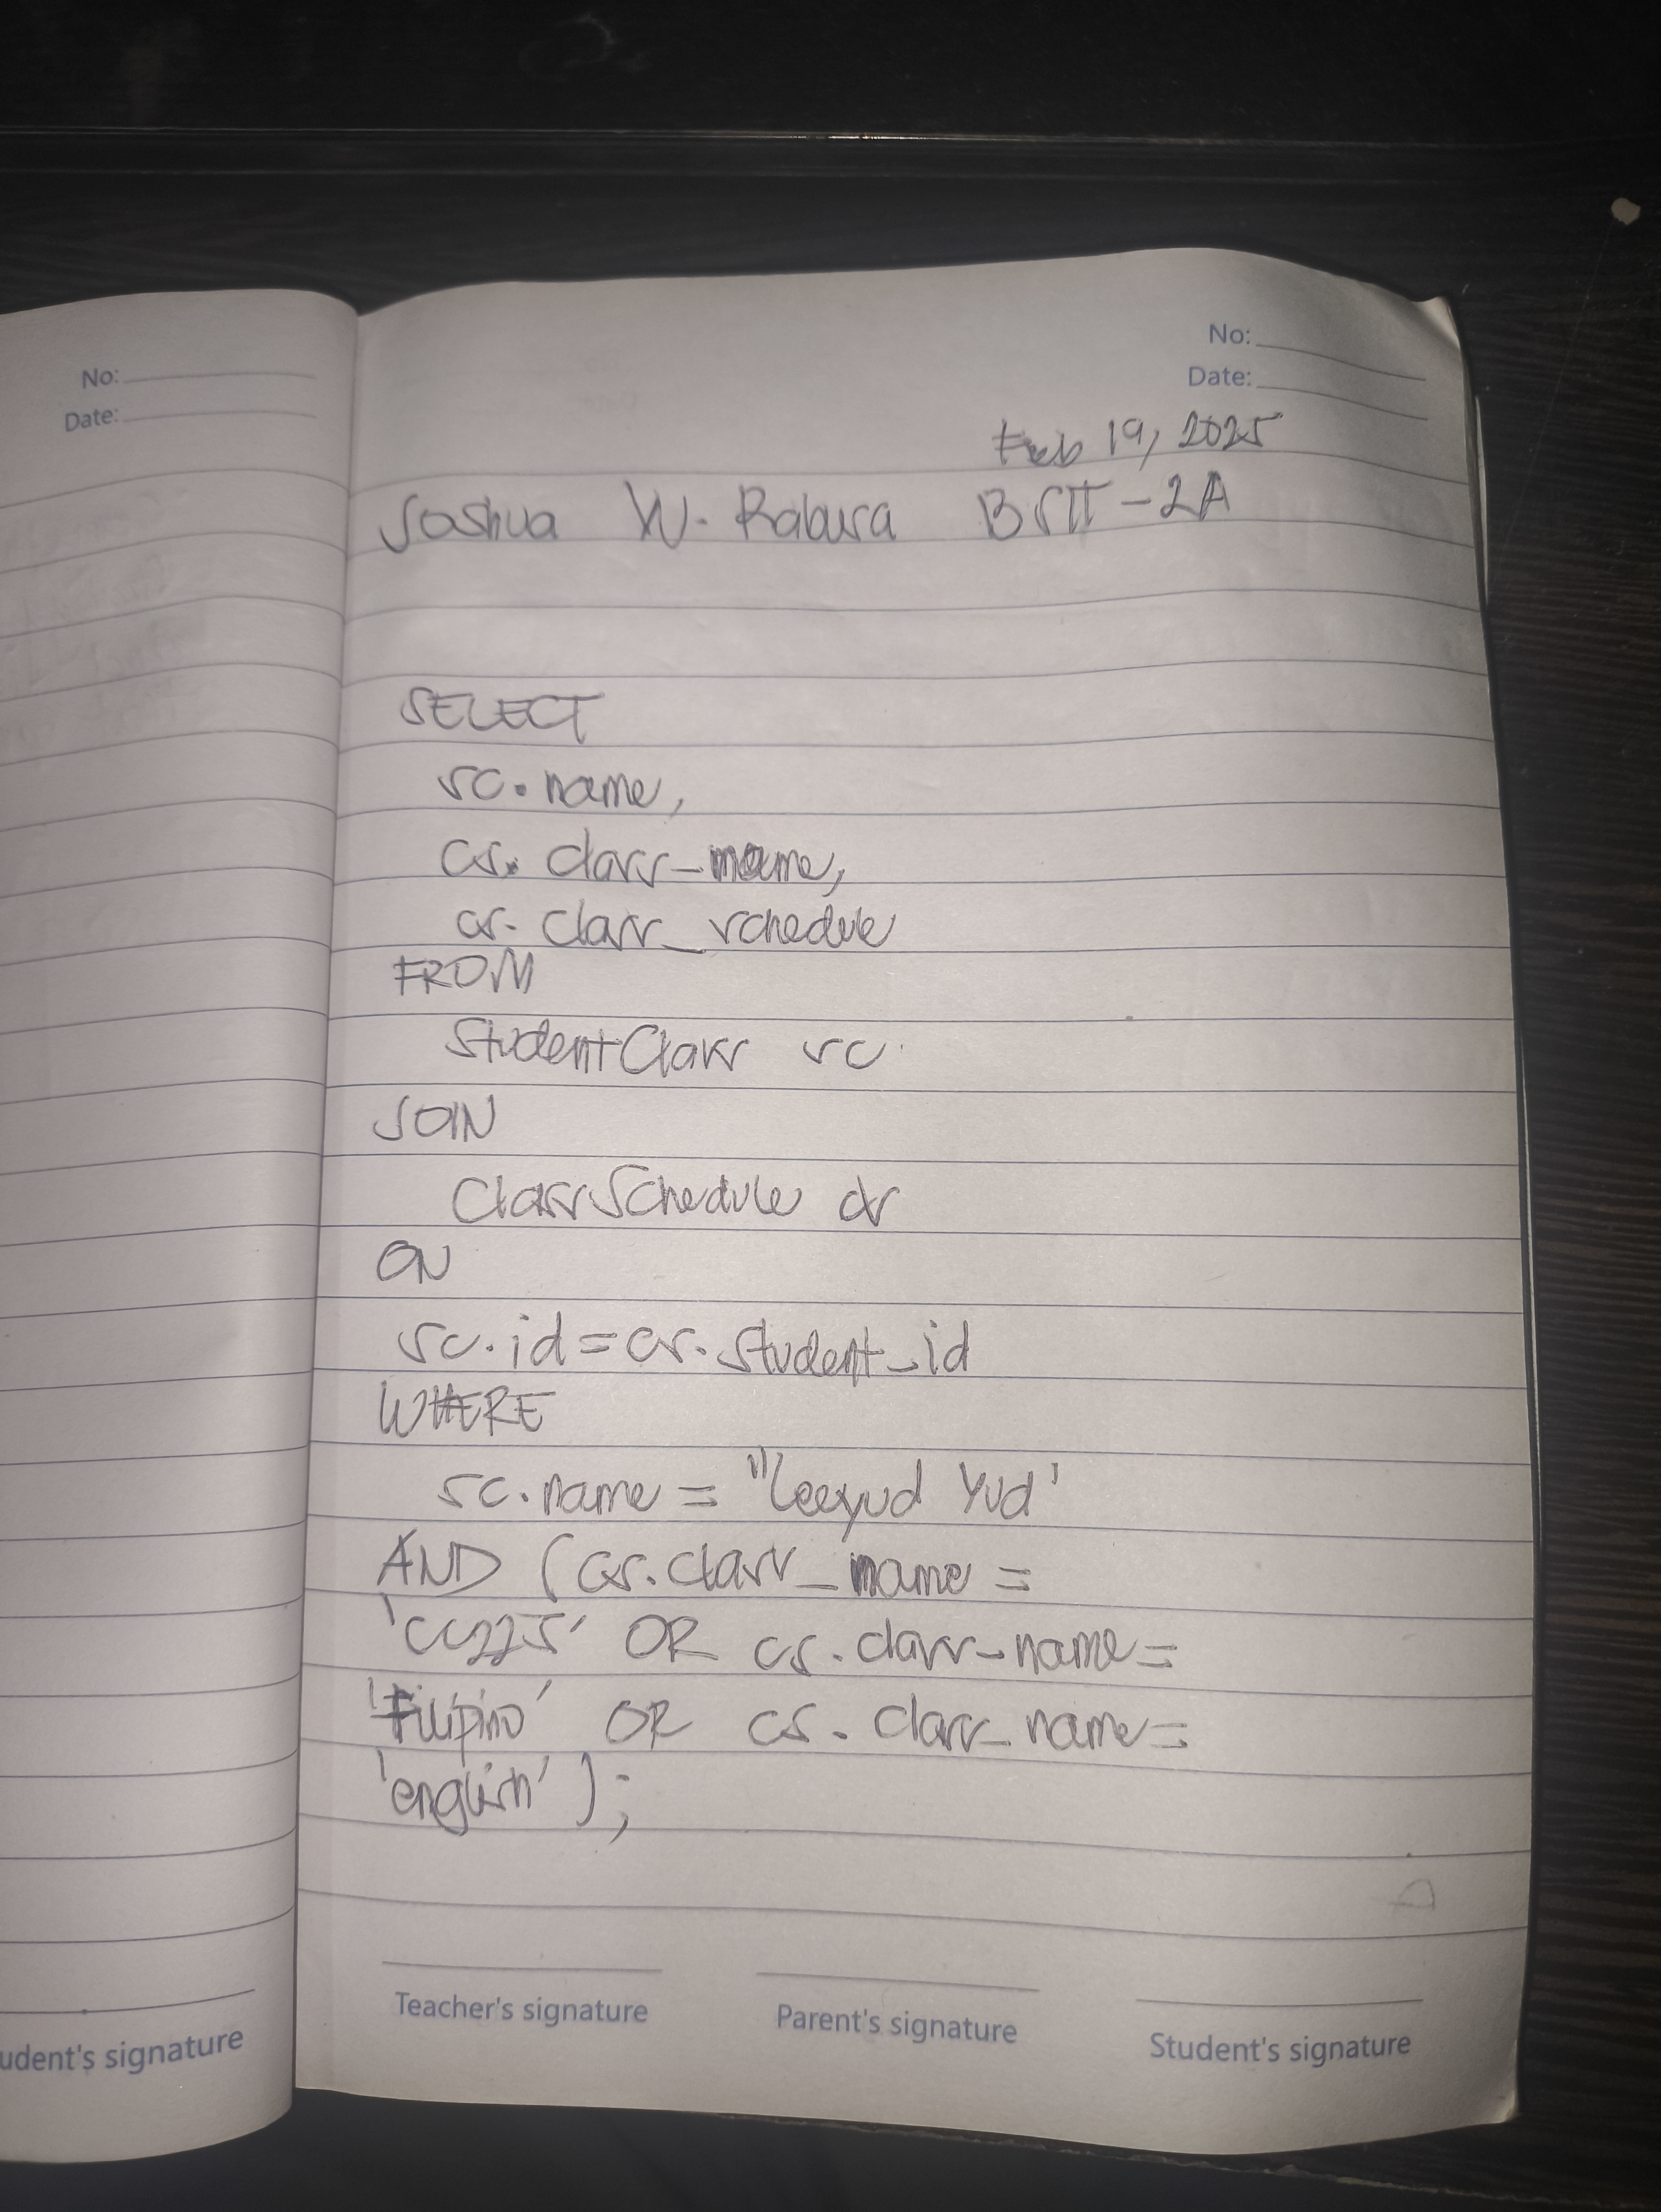 No:
Date:
No:
Date:
Feb 19, 2025
Joshua W. Rabusa BSIT-2A
SELECT
sc.name,
cs. class_name,
cs. class_schedule
FROM
StudentClass sc
JOIN
ClassSchedule cs
ON
sc.id=cs.student_id
WHERE
sc.name = "Leeyud Yud'
AND (cs.class_name =
'CC225' OR cs.class_name=
'Filipino' OR cs. class_name=
'english');
Teacher's signature
Parent's signature
Student's signature
udent's signature